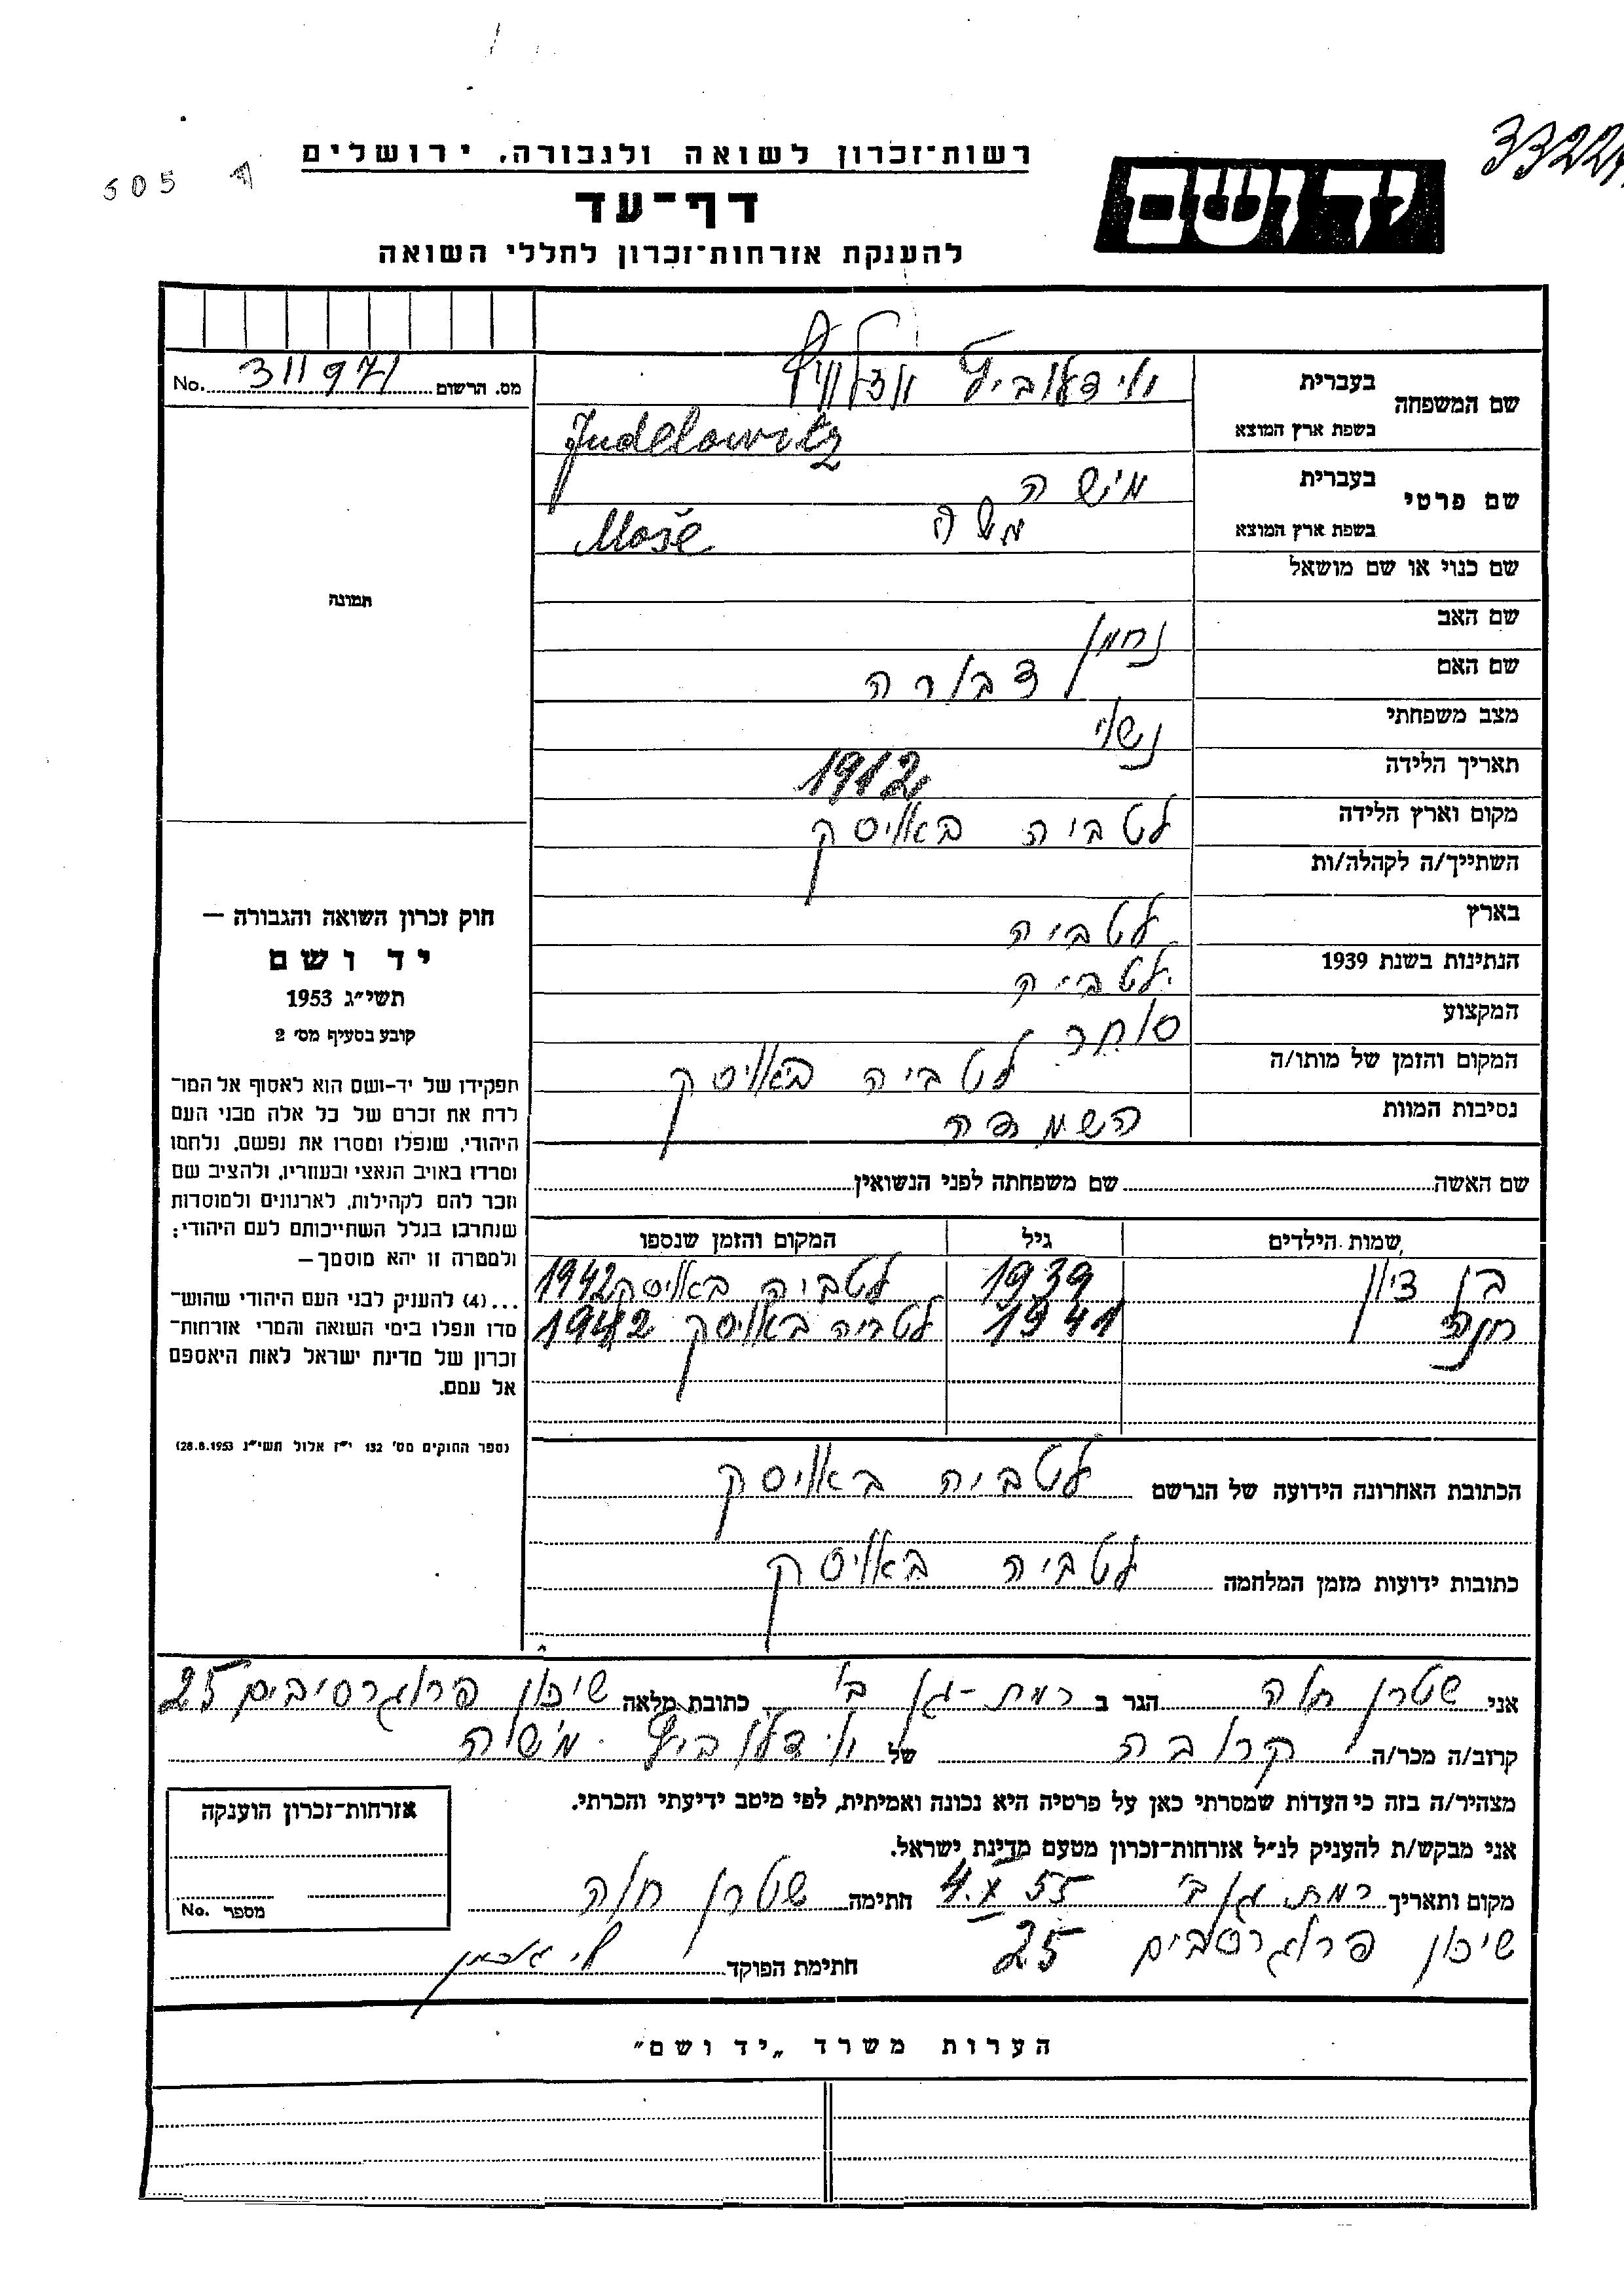 33224
505
רשות־זכרון לשואה ולגבורה, ירושלים
יד ושם
דף־עד
להענקת אזרחות־זכרון לחללי השואה
מס. הרשום 311971 No.
שם המשפחה
בעברית יודעלוביץ
בשפת ארץ המוצא Judelowitz
שם פרטי
בעברית מישה
בשפת ארץ המוצא משה Moše
שם כנוי או שם מושאל
שם האב נחמן
שם האם דבורה
מצב משפחתי נשוי
תאריך הלידה 1912
מקום וארץ הלידה לטביה באוסק
השתייך/ה לקהלה/ות
בארץ לטביה
הנתינות בשנת 1939 לטביה
המקצוע סוחר
המקום והזמן של מותו/ה לטביה
נסיבות המוות השמדה
שם האשה שם משפחתה לפני הנשואין
שמות הילדים גיל המקום והזמן שנספו
בן ציון 1939 לטביה 1942
1941 לטביה 1942
הכתובת האחרונה הידועה של הנרשם לטביה
כתובות ידועות מזמן המלחמה לטביה
תמונה
חוק זכרון השואה והגבורה —
יד ושם
תשי״ג 1953
קובע בסעיף מס׳ 2
תפקידו של יד-ושם הוא לאסוף אל המו־
לדת את זכרם של כל אלה מבני העם
היהודי, שנפלו ומסרו את נפשם, נלחמו
ומרדו באויב הנאצי ובעוזריו, ולהציב שם
וזכר להם לקהילות, לארגונים ולמוסדות
שנחרבו בגלל השתייכותם לעם היהודי;
ולמטרה זו יהא מוסמך—
...(4) להעניק לבני העם היהודי שהוש־
מדו ונפלו בימי השואה והמרי אזרחות־
זכרון של מדינת ישראל לאות היאספם
אל עמם.
(ספר החוקים מס׳ 132 י״ז אלול תשי״ג 28.8.1953)
אני שטרן חוה הגר ב רמת-גן ב׳ כתובת מלאה שיכון פרוגרסיבים 25
קרוב/ה מכר/ה קרובה של יודעלוביץ מישה
מצהיר/ה בזה כי העדות שמסרתי כאן על פרטיה היא נכונה ואמיתית, לפי מיטב ידיעתי והכרתי.
אני מבקש/ת להעניק לנ״ל אזרחות־זכרון מטעם מדינת ישראל.
מקום ותאריך רמת גן ב׳ 4.X 55 חתימה שטרן חוה
שיכון פרוגרסיבים 25
חתימת הפוקד
אזרחות־זכרון הוענקה
מספר No.
הערות משרד „יד ושם״